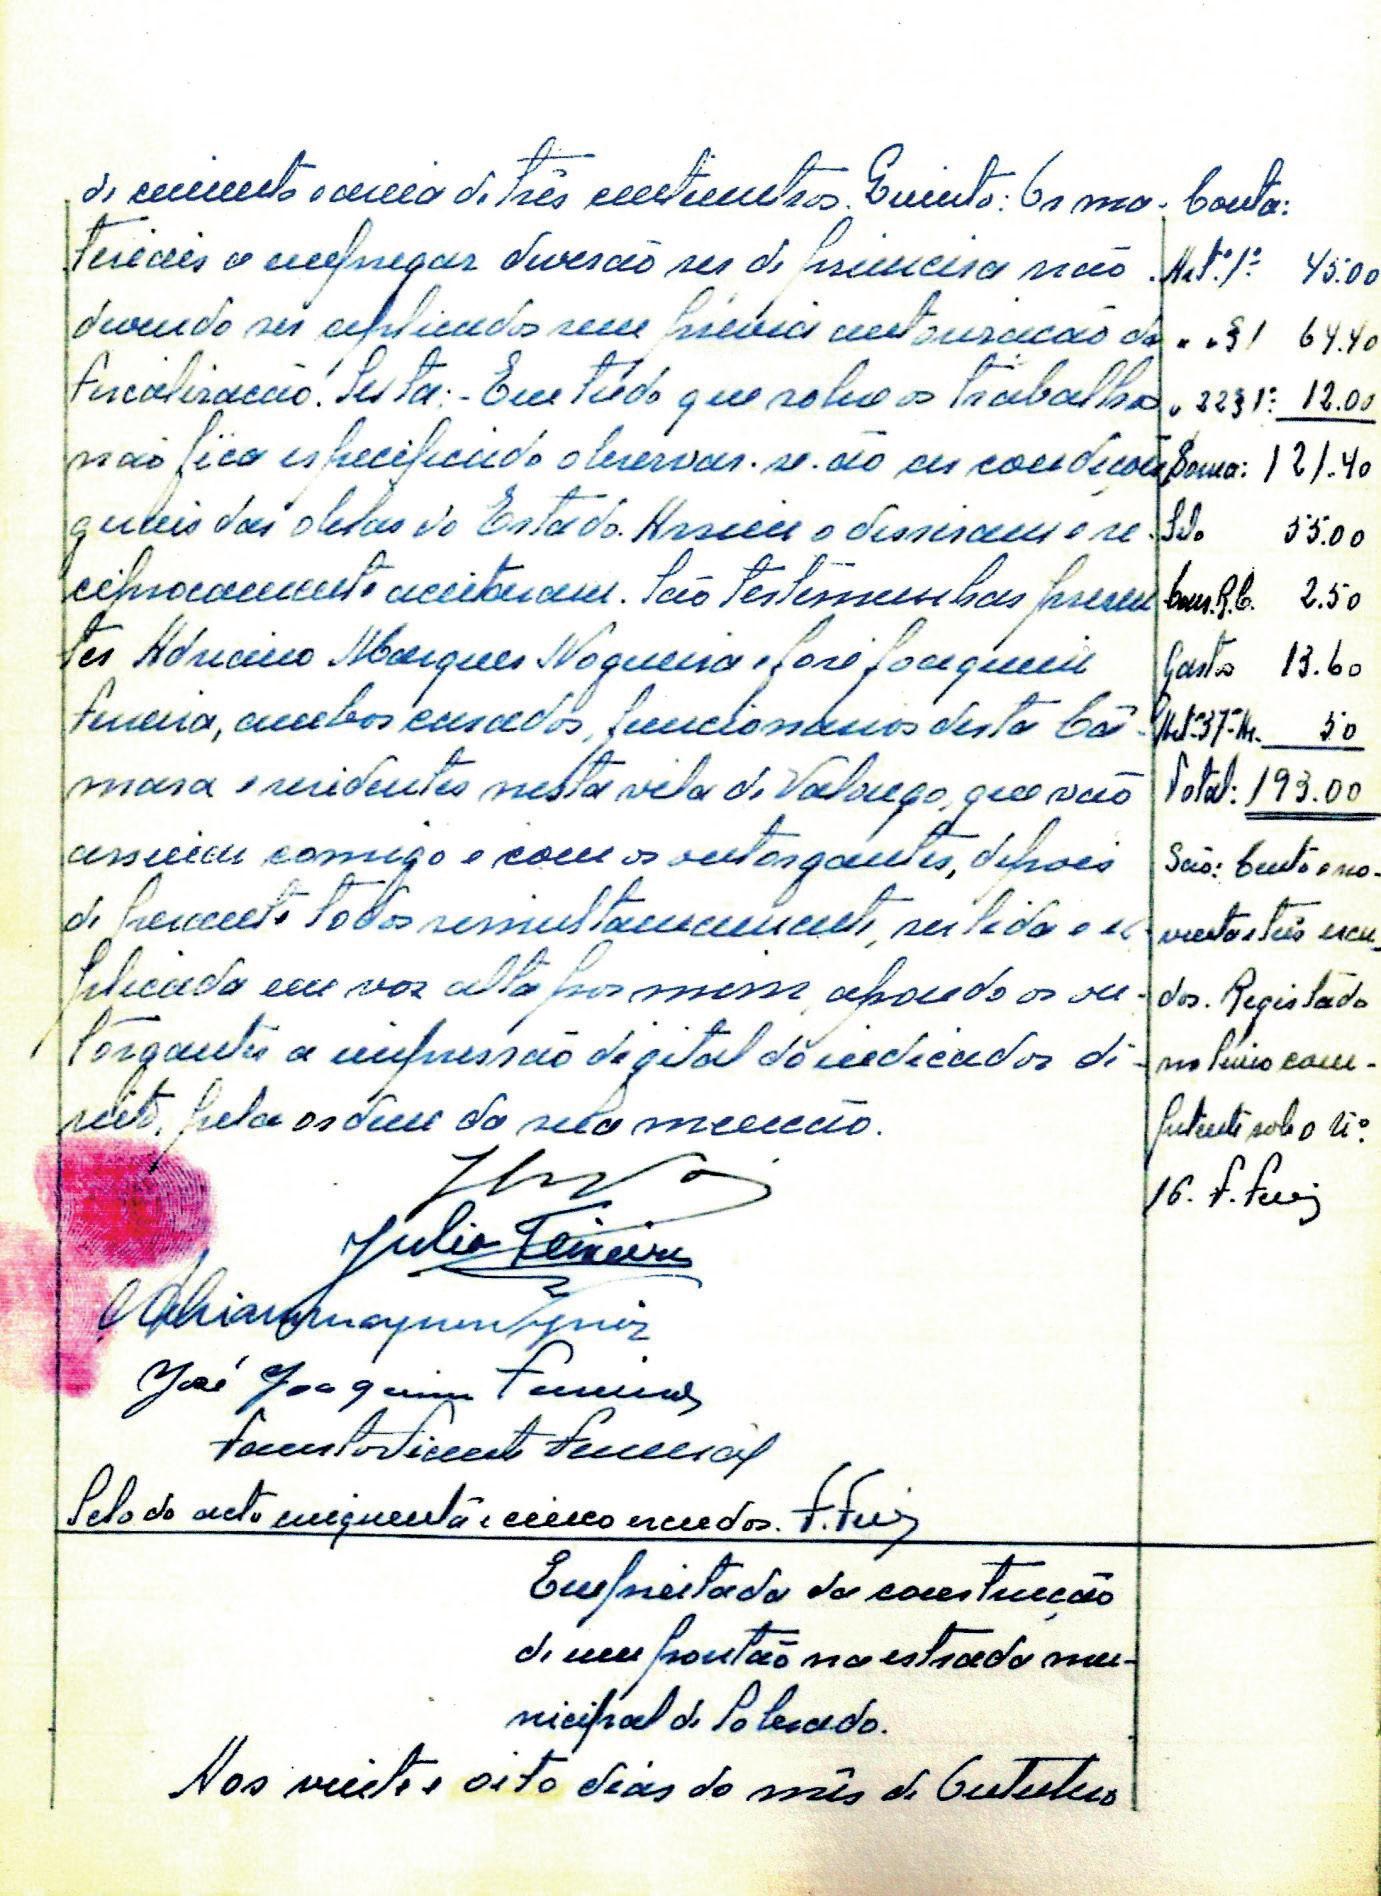 de cimento e areia de três centimetros. Quinto: Os ma-
teriais a empregar deverão ser de primeira não
devendo ser aplicados sem prévia autorização da
fiscalização. Sexta:- Em tudo que sobre os trabalhos
não fica especificado observar-se-ão as condições
gerais das obras do Estado. Assim o disseram e re-
ciprocamente aceitaram. São testemunhas presen
tes Adriano Marques Nogueira e José Joaquim
Ferreira, ambos casados, funcionarios desta Câ-
mara e residentes nesta vila de Valongo, que vão
assinar comigo e com os outorgantes, depois
de perante todos simultaneamente, ser lida e ex-
plicada em voz alta por mim, apondo os ou-
torgantes a impressão digital do indicador di-
reito, pela ordem da sua menção.
Julio Teixeira
José Joaquim Ferreira
Fausto Vicente Ferreira
Selo do acto cinquenta e cinco escudos. F. Ferrª
Conta:
Artº. 1º 45.00
" " § 1 64.40
" 22 § 1º: 12.00
Soma: 121.40
Selo 55.00
Cons. R. C. 2.50
Gasto 13.60
Artº 37º 50
Total: 193.00
São: Cento e no-
venta e três escu-
dos. Registado
no livro com-
petente sob o nº
16. F. Ferrª
Empreitada da construção
de um pontão na estrada mu-
nicipal de Sobrado.
Aos vinte e oito dias do mês de Outubro